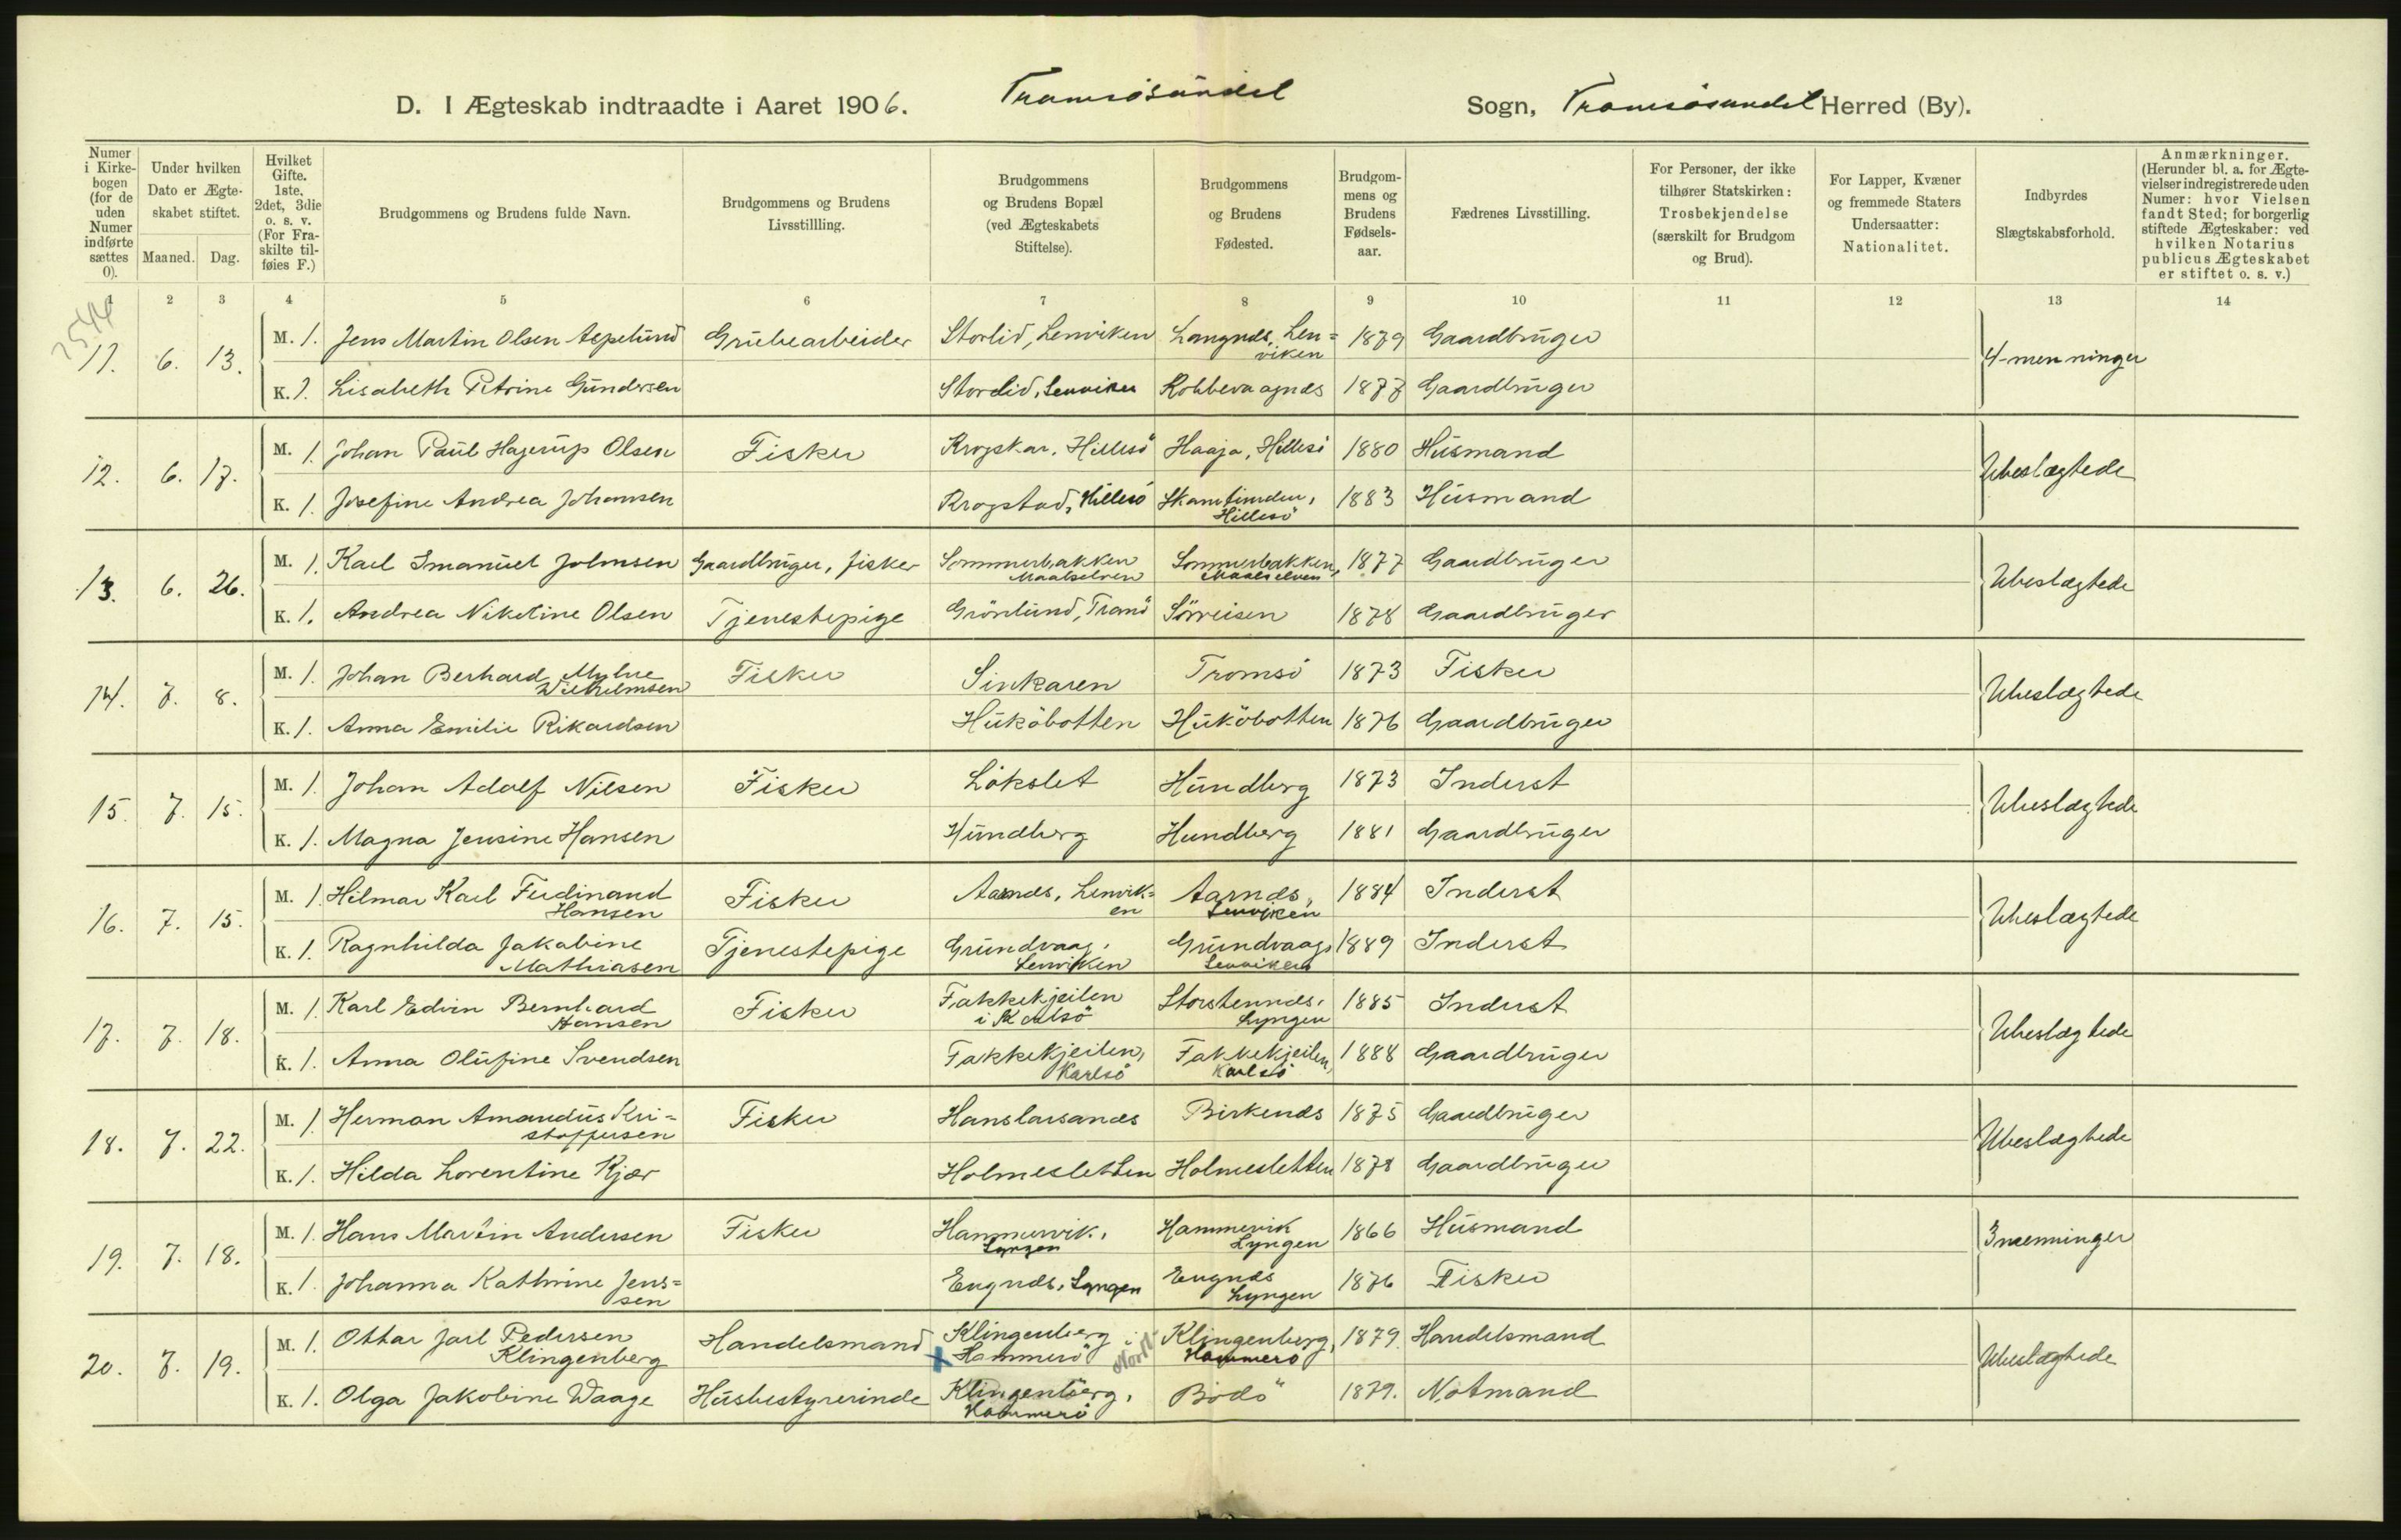 D. I Ægteskab indtraadte i Aaret 1906. Tromsøsundet Sogn, Tromsøsundet Herred (By).
Numer i Kirkebogen (for de uden Numer indførte sættes 0).
Under hvilken Dato er Ægteskabet stiftet.
Maaned. Dag.
Hvilket Gifte. 1ste, 2det, 3die o. s. v. (For Fraskilte tilføies F.)
Brudgommens og Brudens fulde Navn.
Brudgommens og Brudens Livsstillling.
Brudgommens og Brudens Bopæl (ved Ægteskabets Stiftelse).
Brudgommens og Brudens Fødested.
Brudgommens og Brudens Fødselsaar.
Fædrenes Livsstilling.
For Personer, der ikke tilhører Statskirken: Trosbekjendelse (særskilt for Brudgom og Brud).
For Lapper, Kvæner og fremmede Staters Undersaatter: Nationalitet.
Indbyrdes Slægtskabsforhold.
Anmærkninger. (Herunder bl. a. for Ægtevielser indregistrerede uden Numer: hvor Vielsen fandt Sted; for borgerlig stiftede Ægteskaber: ved hvilken Notarius publicus Ægteskabet er stiftet o. s. v.)
1 2 3 4 5 6 7 8 9 10 11 12 13 14
11. 6. 13. M. 1. Jens Martin Olsen Aspelund Grubearbeider Storlid, Lenviken Langnes, Lenviken 1879 Gaardbruger 4-menninger
K. 1. Lisabeth Petrine Gundersen Storlid, Lenviken Kobbevaagnes 1877 Gaardbruger
12. 6. 17. M. 1. Johan Paul Hagerup Olsen Fisker Hillesö Haaja, Hillesö 1880 Husmand Ubeslægtede
K. 1. Josefine Andrea Johansen Krogstad, Hillesö Hillesö 1883 Husmand
13. 6. 26. M. 1. Karl Imanuel Johnsen Gaardbruger, fisker Sommerbakken Maalselven Sommerbakken, Maalselven 1877 Gaardbruger Ubeslægtede
K. 1. Andrea Nikoline Olsen Tjenestepige Grönlund, Tranö Sörreisen 1878 Gaardbruger
14. 7. 8. M. 1. Johan Berhard Myhre Wilhelmsen Fisker Sinkaren Tromsö 1873 Fisker Ubeslægtede
K. 1. Anna Emilie Rikardsen Huköbotten Huköbotten 1876 Gaardbruger
15. 7. 15. M. 1. Johan Adolf Nilsen Fisker Lökslet Hundberg 1873 Inderst Ubeslægtede
K. 1. Magna Jensine Hansen Hundberg Hundberg 1881 Gaardbruger
16. 7. 15. M. 1. Hilmar Karl Ferdinand Hansen Fisker Aarnes, Lenviken Aarnes, Lenviken 1884 Inderst Ubeslægtede
K. 1. Ragnhilda Jakabine Mathiasen Tjenestepige Grundvaag, Lenviken Grundvaag, Lenviken 1889 Inderst
17. 7. 18. M. 1. Karl Edvin Bernhard Hansen Fisker Fakkekjeilen i Karlsö Storstennes, Lyngen 1885 Inderst Ubeslægtede
K. 1. Anna Olufine Svendsen Fakkekjeilen, Karlsö Fakkekjeilen, Karlsö 1888 Gaardbruger
18. 7. 22. M. 1. Herman Amandus Kristoffersen Fisker Hanslarsanes Birkenes 1875 Gaardbruger Ubeslægtede
K. 1. Hilda Lorentine Kjær Holmesletten Holmesletten 1878 Gaardbruger
19. 7. 18. M. 1. Hans Martin Andersen Fisker Hammervik, Lyngen Hammervik Lyngen 1866 Husmand 3menninger
K. 1. Johanna Kathrine Jenssen Engnes, Lyngen Engnes Lyngen 1876 Fisker
20. 7. 19. M. 1. Ottar Jarl Pedersen Klingenberg Handelsmand Klingenberg i Hammerö Klingenberg, Hammerö 1879. Handelsmand Ubeslægtede
K. 1. Olga Jakobine Waage Husbestyrerinde Klingenberg, Hammerö Bodö 1879. Notmand